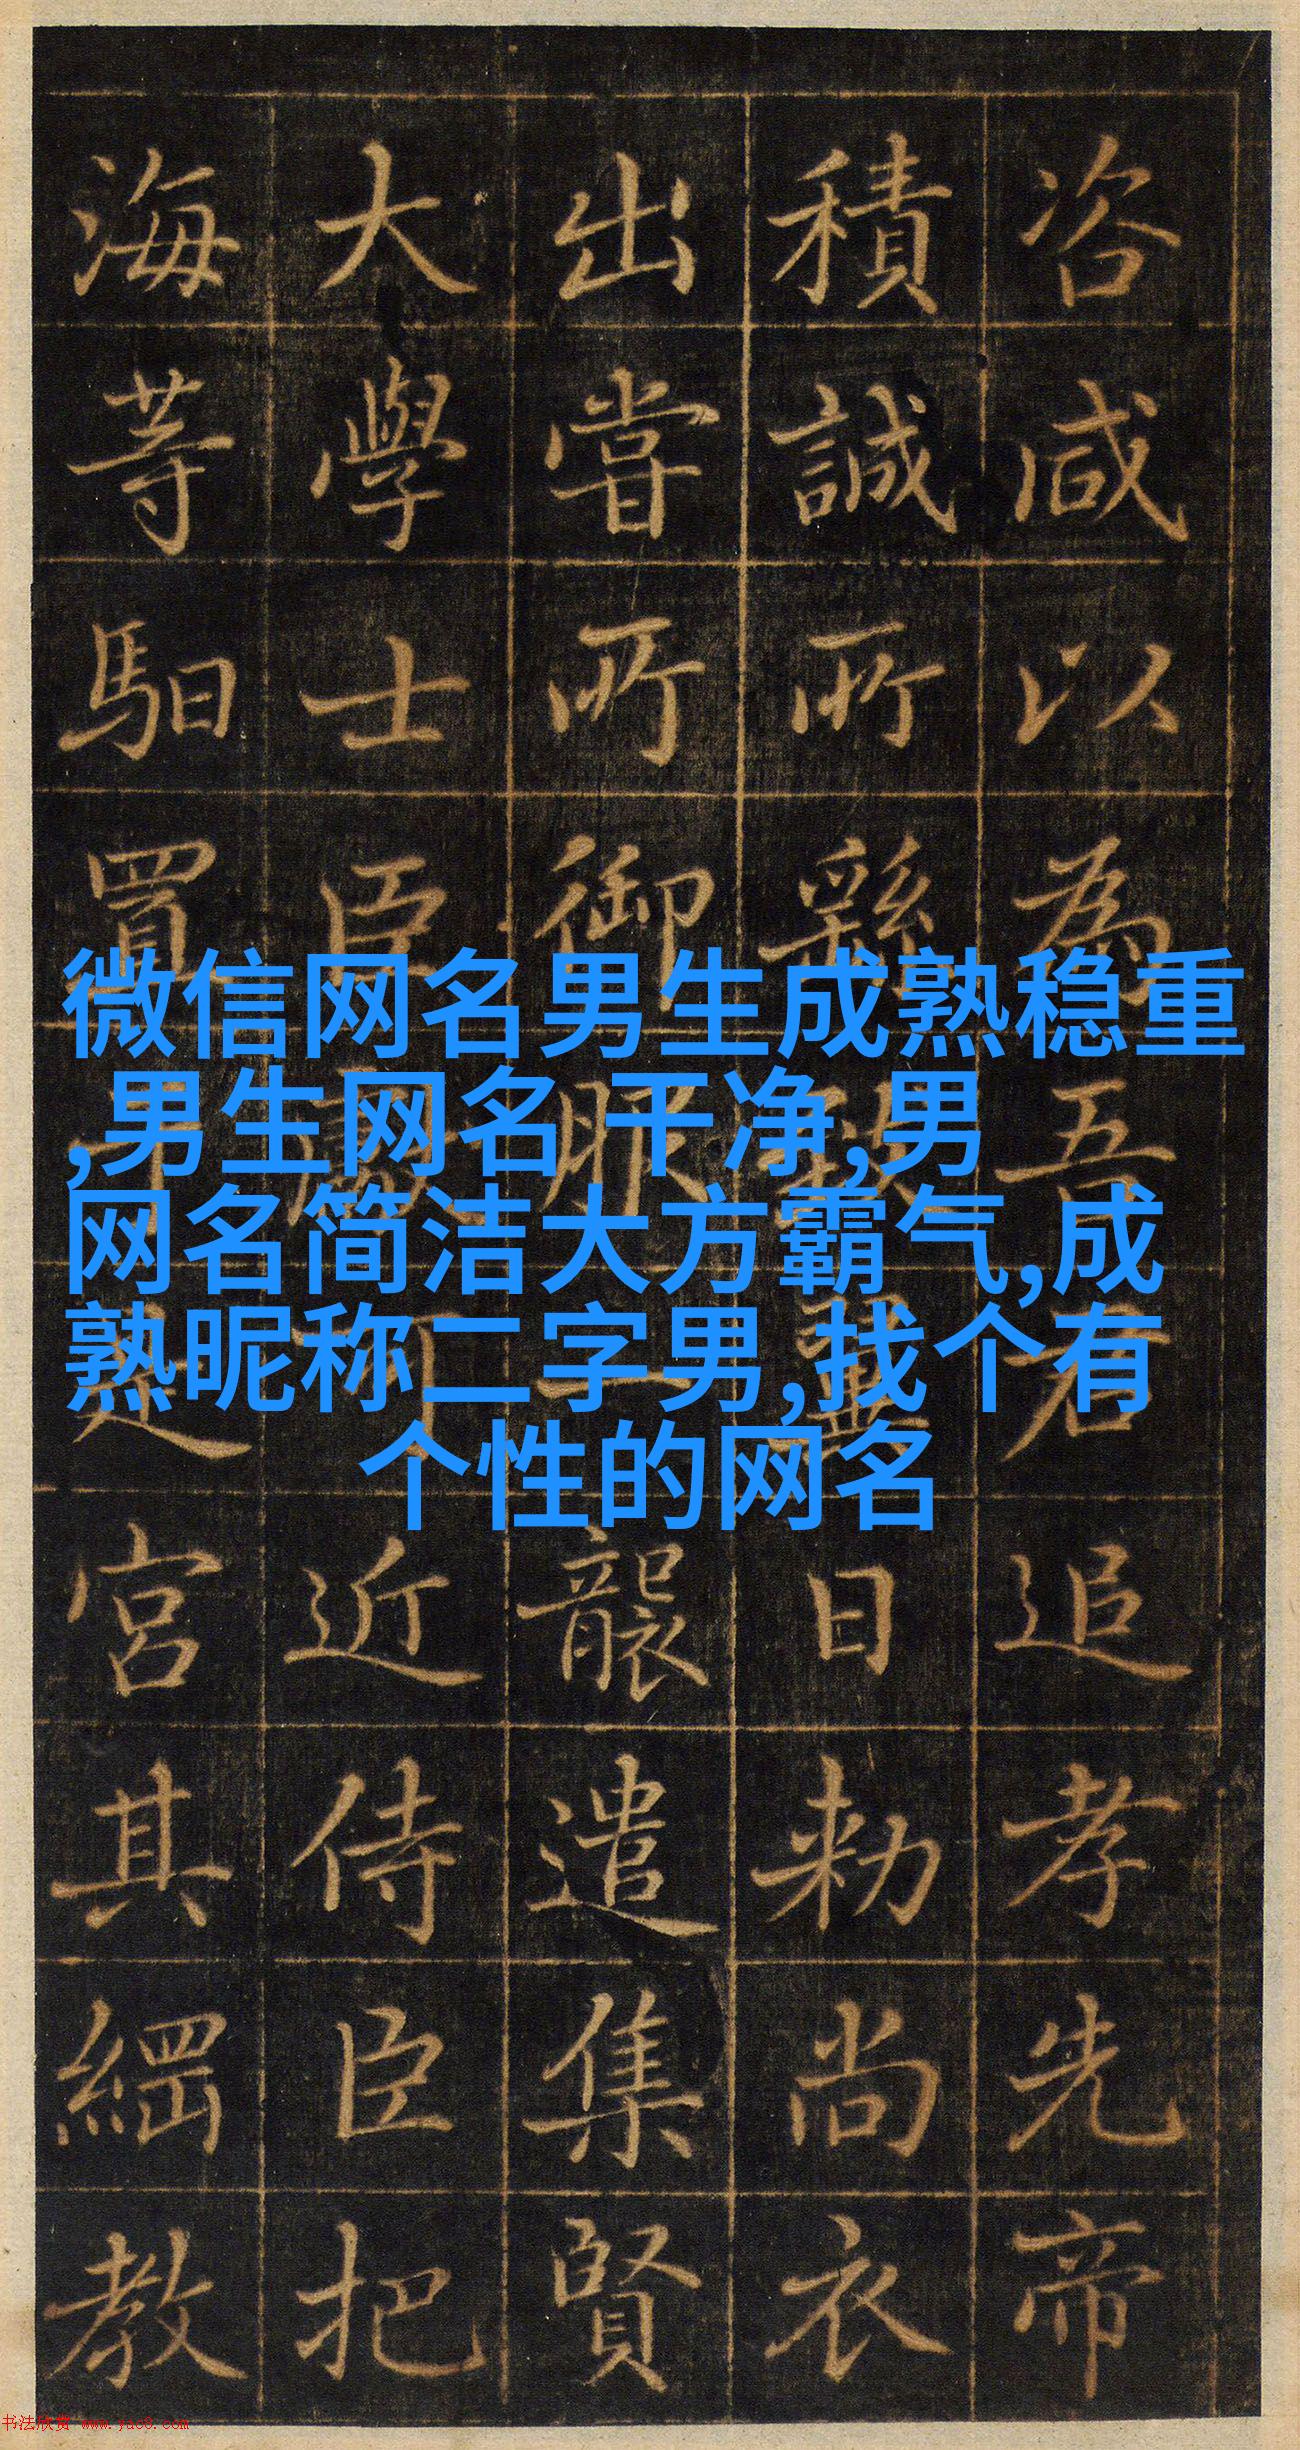 微信网名男生成熟稳重
,男生网名 干净,男
网名简洁大方霸气,成
熟昵称二字男,找个有
个性的网名
咨咸以為吾君追孝先帝
積誠所繇致日勑尚衣
出嘗所御服一襲遣集賢
大學士臣近侍臣把
海等馹置于是宮其綱教
书法欣赏 www.yac8.com